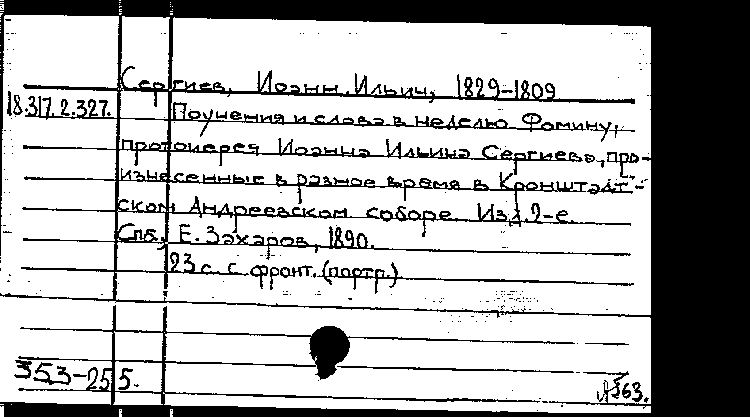 Сергиев, Иоанн Ильич, 1829-1809
18.317.2.327. Поучения и слова в неделю Фомину,
протоиерея Иоанна Ильича Сергиева, про-
изнесенные в разное время в Кронштадт-
ском Андреевском соборе. Изд. 2-е.
Спб., Е. Захаров, 1890.
23 с. с фронт. (портр.)
353-25 5.